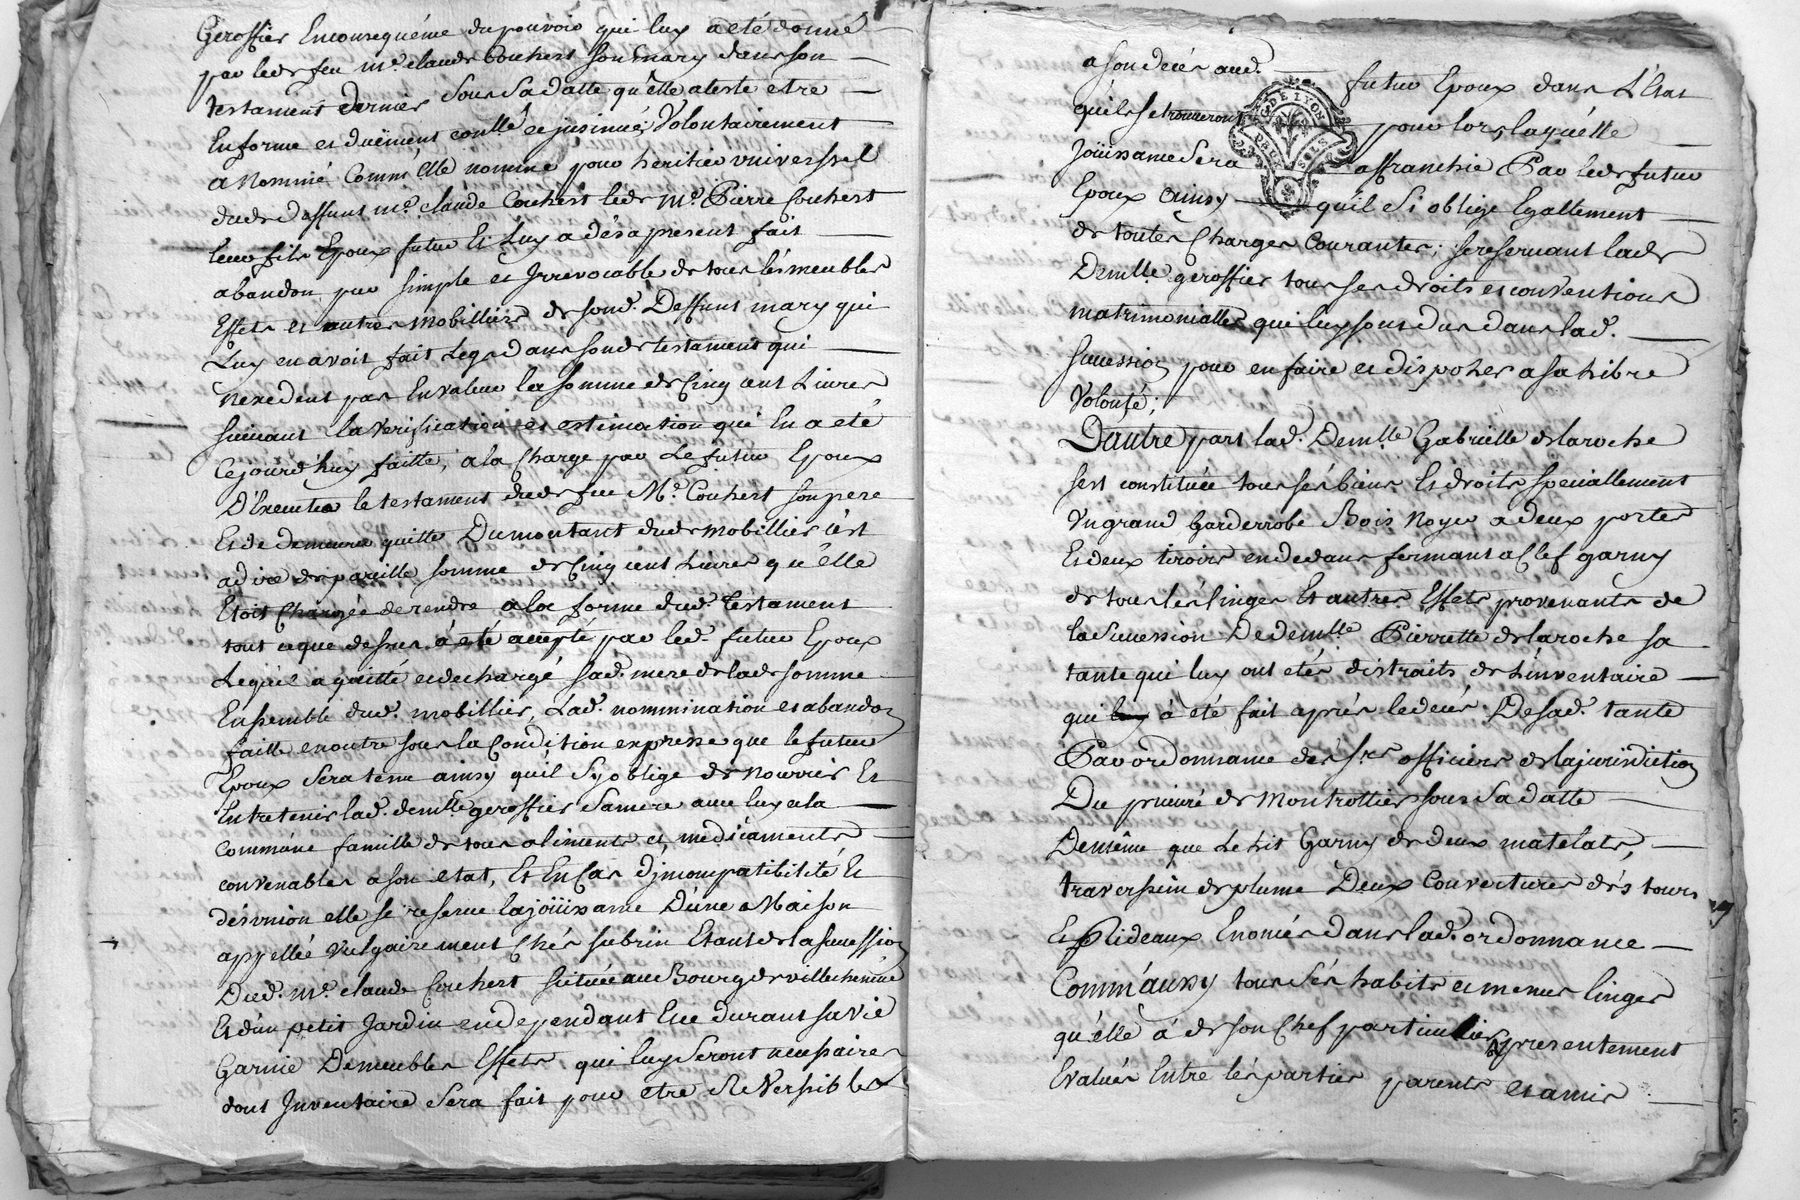 Geroffier En conséquence du pouvoir qui luy a eté donné
par ledr. feu me. claude Couhert son mary dans son
testament dernier Sous Sa datte qu'elle ateste etre
En forme et duëment contllé et jnsinué; Volontairement
a Nommé Comm'elle nomme pour heritier vniverssel
dudr. deffunt me. claude Couhert ledr. me. Pierre Couhert
leur fils Epoux futur Et Luy a dès a present fait
abandon pur simple et Jrrevocable de tous lés meubles
Effets et autres mobilliers de sond. Deffunt mary qui
Luy en avoit fait Legs dans sondr. testament qui
nexedent pas En valeur la somme de Cinq cent Livres
suivant la verification et estimation qui En a eté
Cejourd'huy faitte, a la Charge par Le futur Epoux
D'Executer le testament dudr. feu Me. Couhert son pere
Et de demeurer quitte Du montant dudr. mobillier c'est
a dire de pareille somme de Cinq cent Livres qu'elle
Etoit Chargée de rendre a la forme dud. testament
tout ce que dessus a eté accepté par led. futur Epoux
Lequel a quitté et dechargé sad. mere de ladr. somme
Ensemble dud. mobillier, Lad. nommination et abandon
faitte en outre sous la Condition expresse que le futur
Epoux Sera tenu ainsy quil S'y oblige de nourrir Et
Entretenir lad. demlle. geroffier Sa mere avec luy et la
commune famille de tous aliments et medicaments
convenables a son etat, Et En Cas d'jncompatibilité Et
désunion elle se reserve la joüissance D'une Maison
appellée vulgairement Chés subrin Etant de la succession
Dud. me. claude Couhert située au Bourg de villechenéve
Et d'un petit Jardin en dependant Et ce durant sa vie
Garnie De meubles Effets qui luy Seront necessaires
dont Jnventaire Sera fait pour etre Reversibles
a son decés aud. futur Epoux dans L'Etat
qu'ils se trouveront pour lors, laquelle
Joüissance Sera affranchie Par ledr. futur
Epoux ainsy quil Si oblige Egallement
de toutes Charges Courantes; se reservant ladr.
Demlle. geroffier tous ses droits et conventions
matrimonialles qui luy sont dus dans lad.
succession pour en faire et disposer a sa libre
Volonté;
D'autre part lad. Demlle. Gabrielle de laroche
sest constituée tous sés biens Et droits speciallement
Vn grand Garderrobe Bois Noyer a deux portes
Et deux tiroirs en dedans fermant a Clef garny
de tous lés linges Et autres Effets provenants de
la Succession De demlle. Pierrette de laroche sa
tante qui luy ont etés distraits de L'inventaire
qui luy à eté fait aprés le decés De sad. tante
Par ordonnance dés srs. officiers de la jurisdiction
Du prieuré de Montrottier sous Sa datte
De même que Le Lit Garny de deux matelats,
traverssin de plume Deux Couvertures dés tours
Et Rideaux Enoncés dans lad. ordonnance
Comm'aussy tous Sés habits et menus linges
qu'elle à de son Chef particulier presentement
Evalués Entre lés parties parents et amis
G. DE LYON
DEUX SOLS